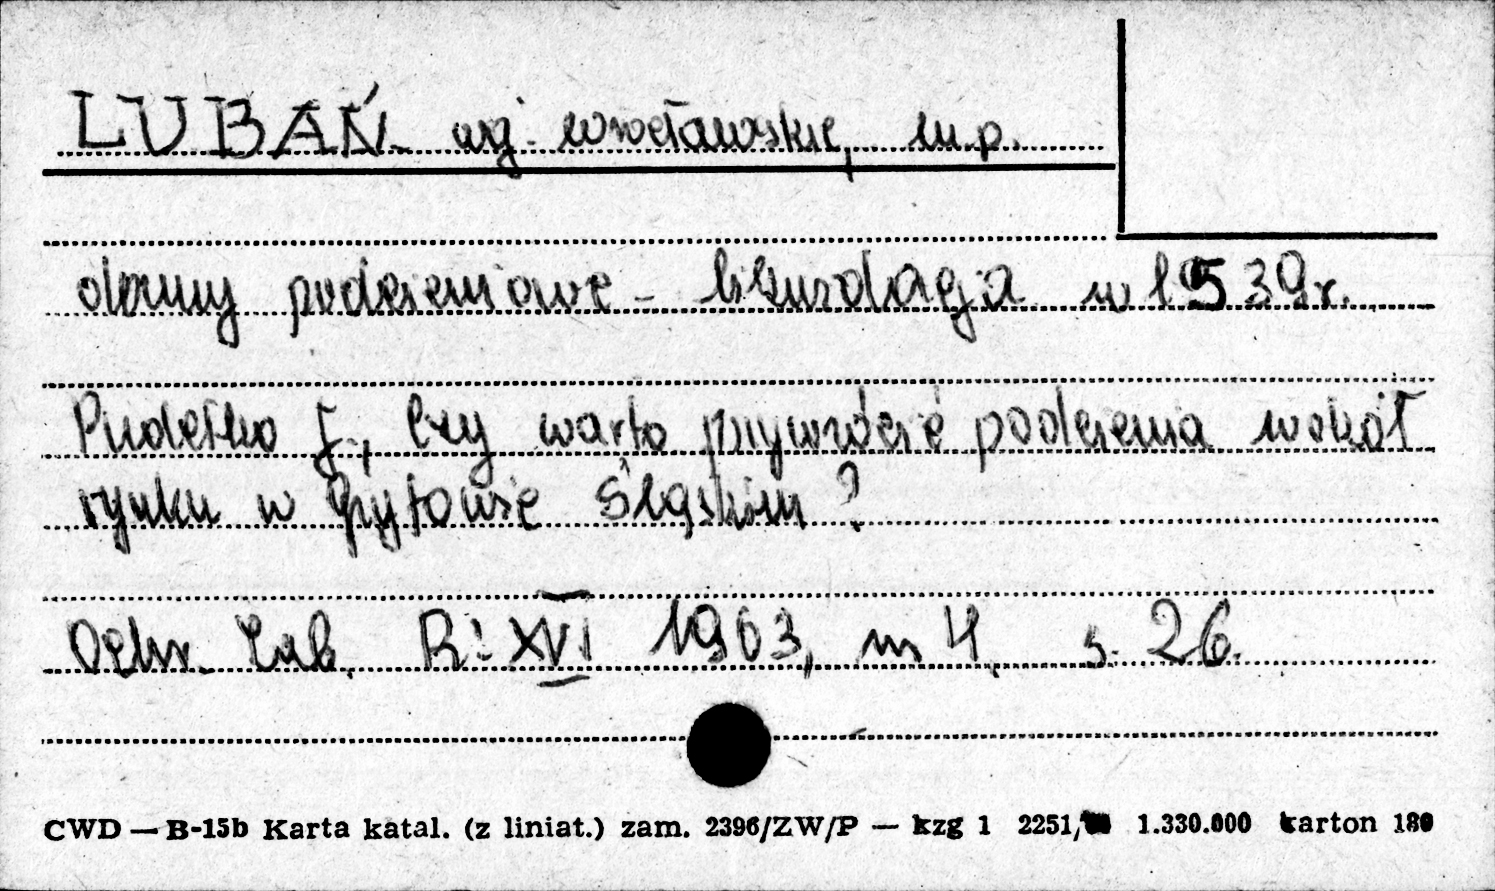 LUBAŃ woj. wrocławskie, m.p.
domy podcieniowe - likwidacja w 1539 r.
Pudełko J., Czy warto przywrócić podcienia wokół
rynku w Gryfowie Śląskim?
Ochr. Zab. R: XVI 1963, nr 4, s. 26.
CWD — B-15b Karta katal. (z liniat.) zam. 2396/ZW/P — kzg 1 2251/ 1.330.000 karton 180